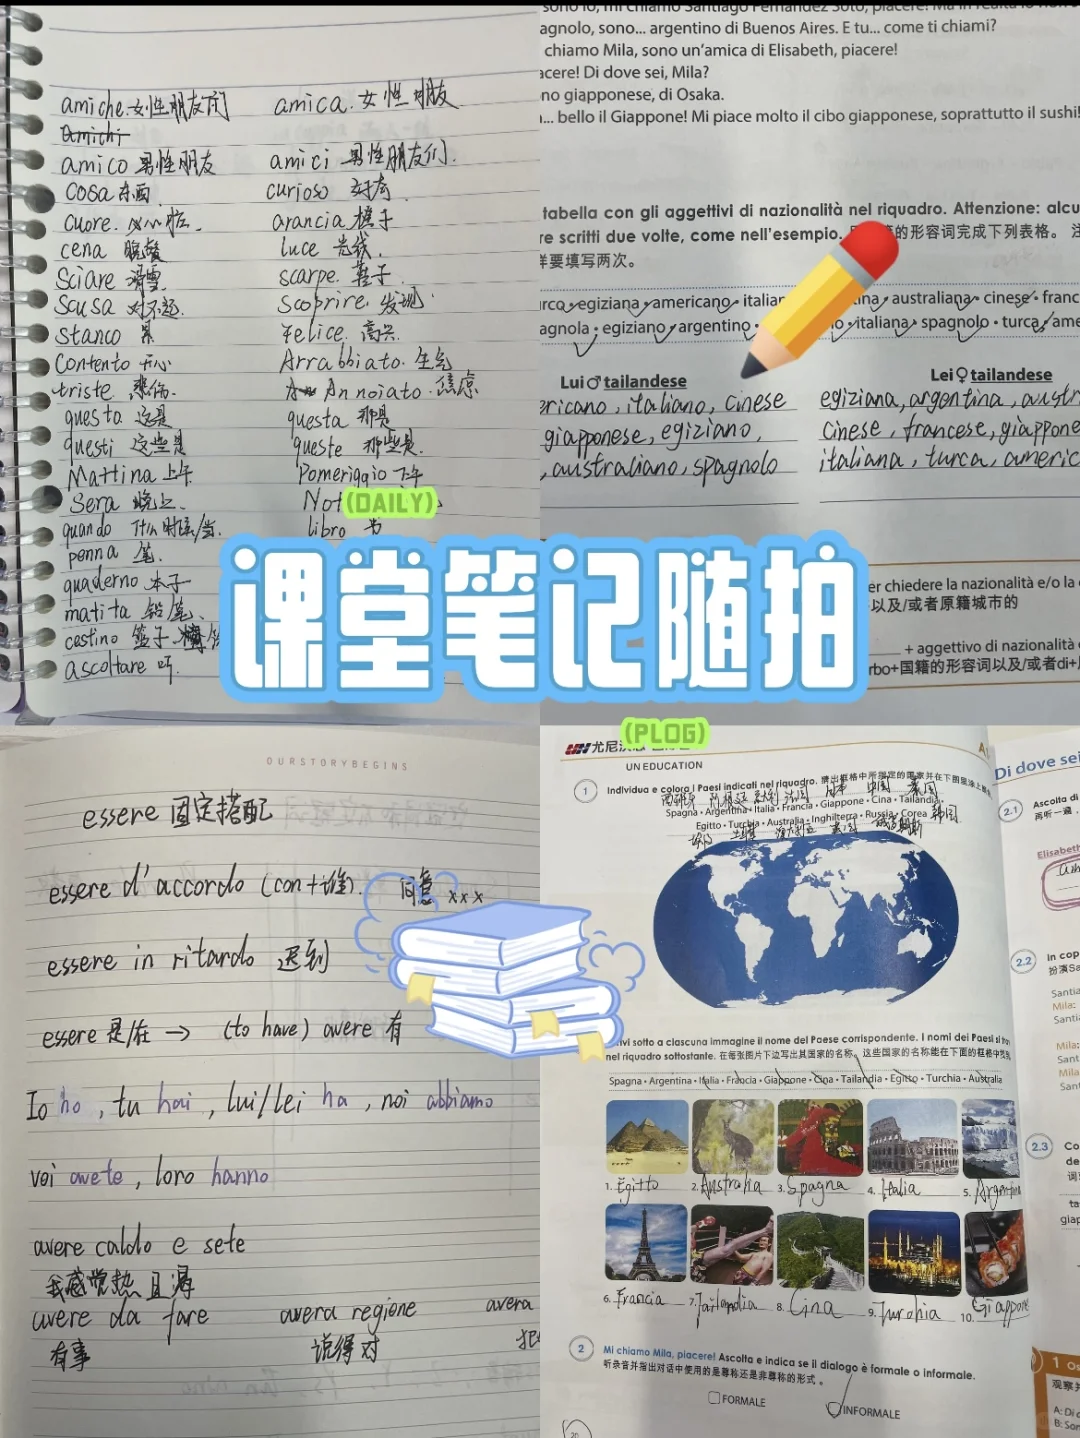 amiche.女性朋友们 amica.女性朋友
amici
amico 男性朋友 amici 男性朋友们.
cosa 东西 curioso 好奇
cuore. 心脏. arancia 橙子
cena 晚餐 luce 光线.
Sciare 滑雪 scarpe. 鞋子.
Scusa 对不起. Scoprire. 发现.
Stanco 累 Felice. 高兴.
Contento 开心 Arrabbiato. 生气
triste. 悲伤. Annoiato. 焦虑
questo 这是 questa 那是
questi 这些是 queste 那些是.
Mattina 上午 Pomeriggio 下午
Sera 晚上. Not
quando 什么时候/当. libro 书
penna 笔.
quaderno 本子
matita 铅笔.
cestino 篮子.
ascoltare 听.
sono io, mi chiamo Santiago Fernández Soto, piacere! Ma in realtà io non
agnolo, sono... argentino di Buenos Aires. E tu... come ti chiami?
chiamo Mila, sono un'amica di Elisabeth, piacere!
acere! Di dove sei, Mila?
no giapponese, di Osaka.
... bello il Giappone! Mi piace molto il cibo giapponese, soprattutto il sushi!
tabella con gli aggettivi di nazionalità nel riquadro. Attenzione: alcu
re scritti due volte, come nell'esempio. 的形容词完成下列表格。 注
样要填写两次。
urca egiziana americano italian ina australiana cinese franc
agnola egiziano argentino o italiana spagnolo turca ame
Lui♂tailandese Lei♀tailandese
ericano, italiano, cinese
giapponese, egiziano,
, australiano, spagnolo
egiziana, argentina, austr
cinese, francese, giappone
italiana, turca, americ
er chiedere la nazionalità e/o la
以及/或者原籍城市的
+ aggettivo di nazionalità
rbo+国籍的形容词以及/或者di+
(DAILY)
课堂笔记随拍
(PLOG)
OURSTORYBEGINS
essere 固定搭配
essere d'accordo (con+谁). 同意 xxx
essere in ritardo 迟到
essere 是/在 → (to have) avere 有
Io ho, tu hai, lui/lei ha, noi abbiamo
voi avete, loro hanno
avere caldo e sete
我感觉热且渴
avere da fare avera regione avera
有事 说得对
尤尼
UN EDUCATION
1 Individua e colora i Paesi indicati nel riquadro. 猜出框格中所指定的国家并在下图里涂上颜
西班牙 阿根廷 意大利 法国 日本 中国 泰国
Spagna • Argentina • Italia • Francia • Giappone • Cina • Tailandia
Egitto • Turchia • Australia • Inghilterra • Russia • Corea 韩国
埃及 土耳其 澳大利亚 英国 俄罗斯
ivi sotto a ciascuna immagine il nome del Paese corrispondente. I nomi dei Paesi si
nel riquadro sottostante. 在每张图片下边写出其国家的名称。这些国家的名称能在下面的框格中找
Spagna • Argentina • Italia • Francia • Giappone • Cina • Tailandia • Egitto • Turchia • Australia
1. Egitto 2. Australia 3. Spagna 4. Italia 5. Argentina
6. Francia 7. Tailandia 8. Cina 9. Turchia 10. Giappone
2 Mi chiamo Mila, piacere! Ascolta e indica se il dialogo è formale o informale.
听录音并指出对话中使用的是尊称还是非尊称的形式。
FORMALE INFORMALE
20
Di dove sei
2.1 Ascolta di
再听一遍，
Elisabeth
2.2 In cop
扮演Sa
Santia
Mila:
Santia
Mila:
Sant
Mila
Santi
2.3 Co
de
词
ta
giap
1 Os
观察并
A: Di d
B: Son